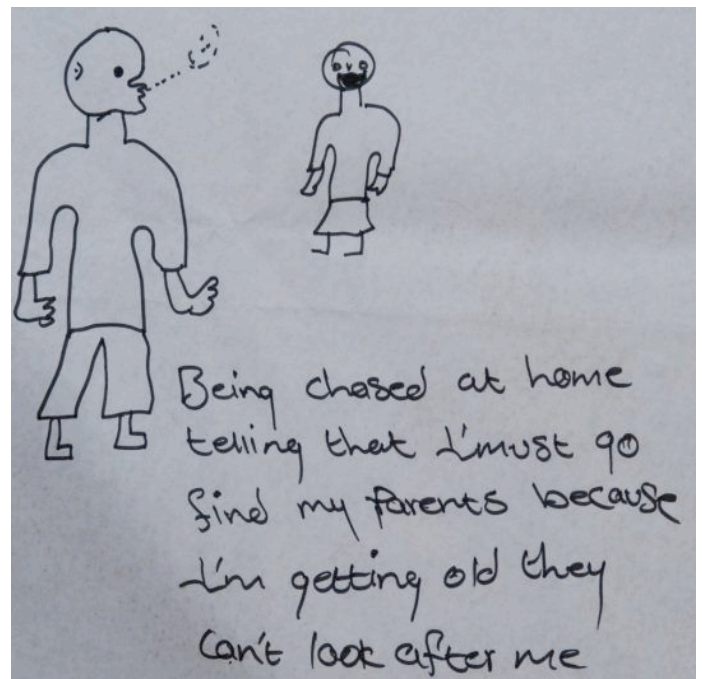 Being chased at home
telling that I'must go
find my Parents because
I'm getting old they
can't look after me